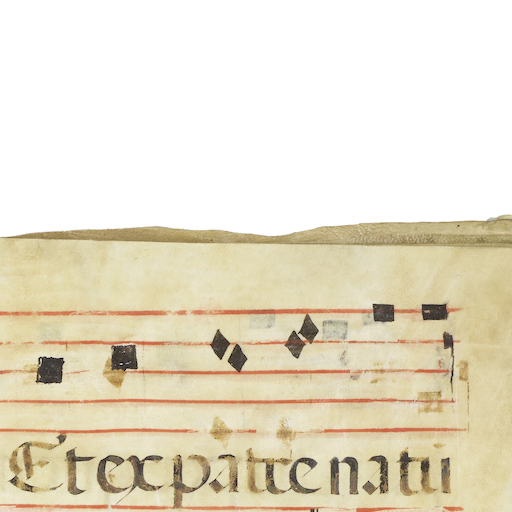 Et ex patre natū